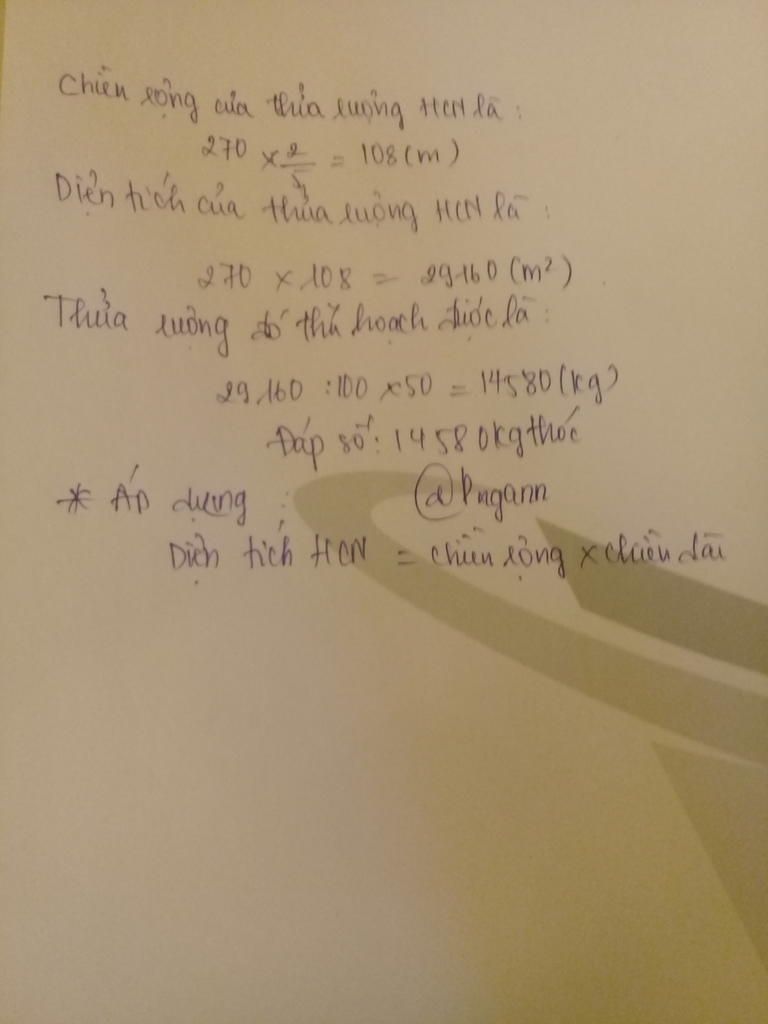 Chiều rộng của thửa ruộng HCN là :
270 x 2/5 = 108 (m)
Diện tích của thửa ruộng HCN là :
270 x 108 = 29160 (m²)
Thửa ruộng đó thu hoạch được là :
29160 : 100 x 50 = 14580 (kg)
Đáp số : 14580kg thóc
* Áp dụng : @Pngann
Diện tích HCN = chiều rộng x chiều dài